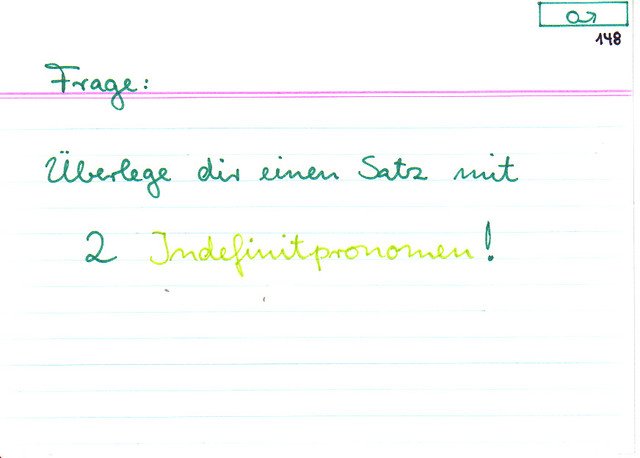 148
Frage:
Überlege dir einen Satz mit
2 Indefinitpronomen!